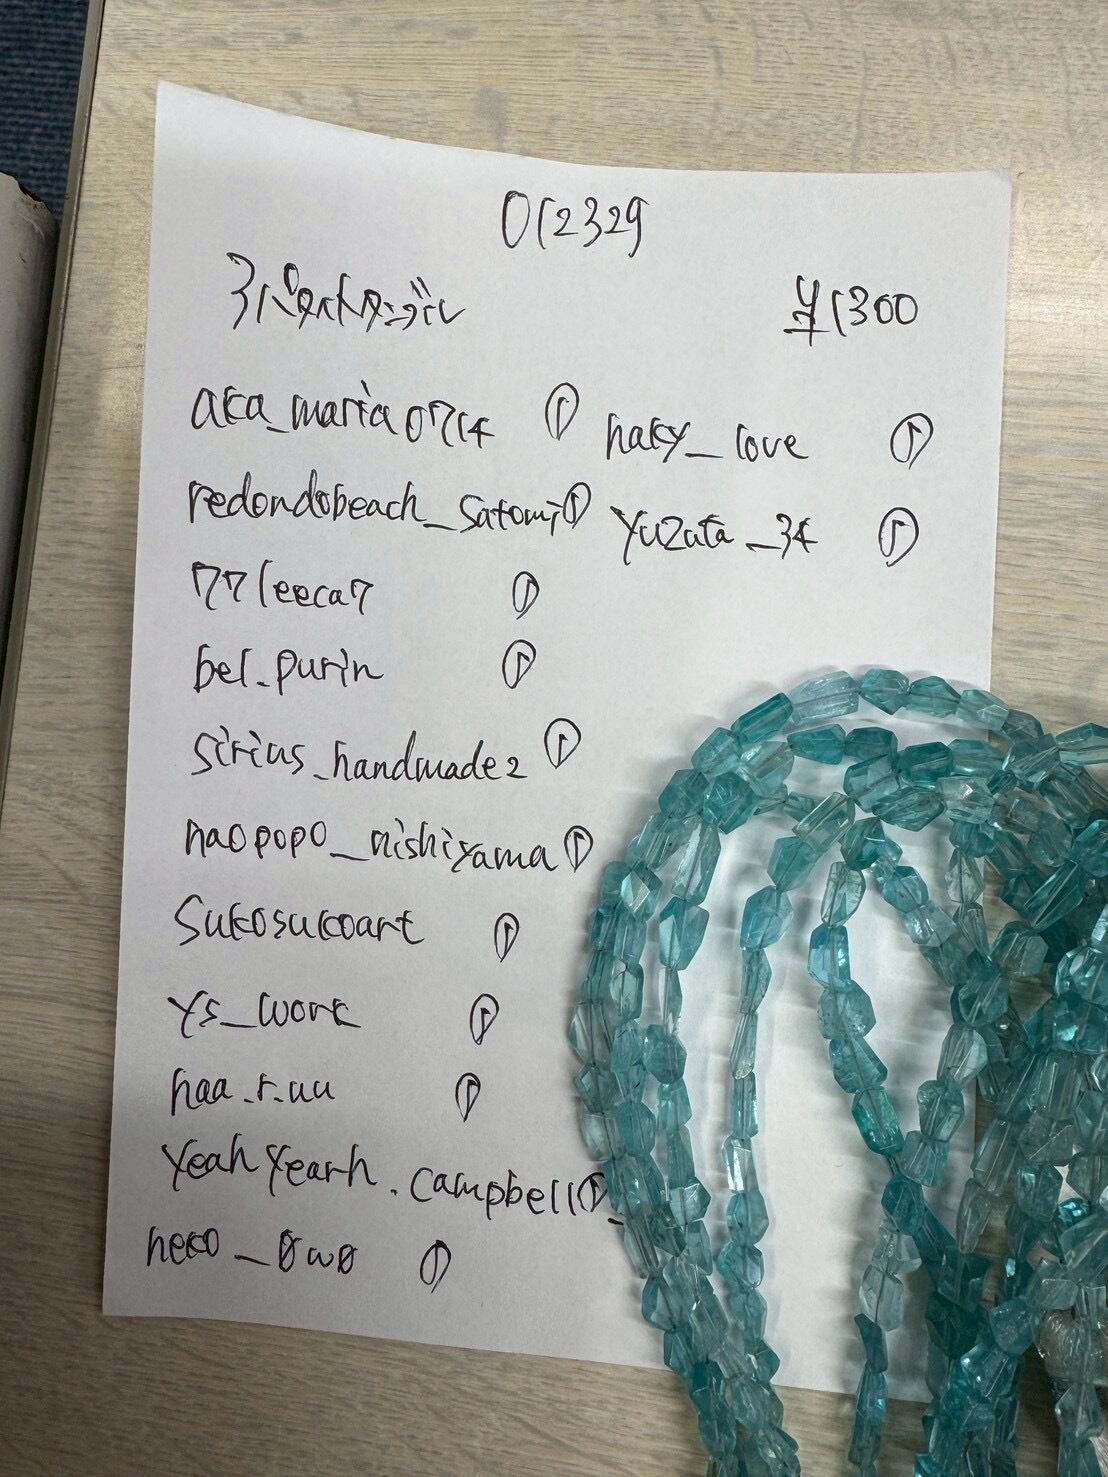 012329
アパタイトタンブル
¥1300
aka_maria0714 ①
redondobeach_satomi ①
771eeca7 ①
bel.purin ①
sirius_handmade2 ①
naopopo_nishiyama ①
sukosukoart ①
ys_work ①
haa.r.uu ①
yeahyearh.campbell ①
neko_0w0 ①
naky_love ①
yuzuta_34 ①